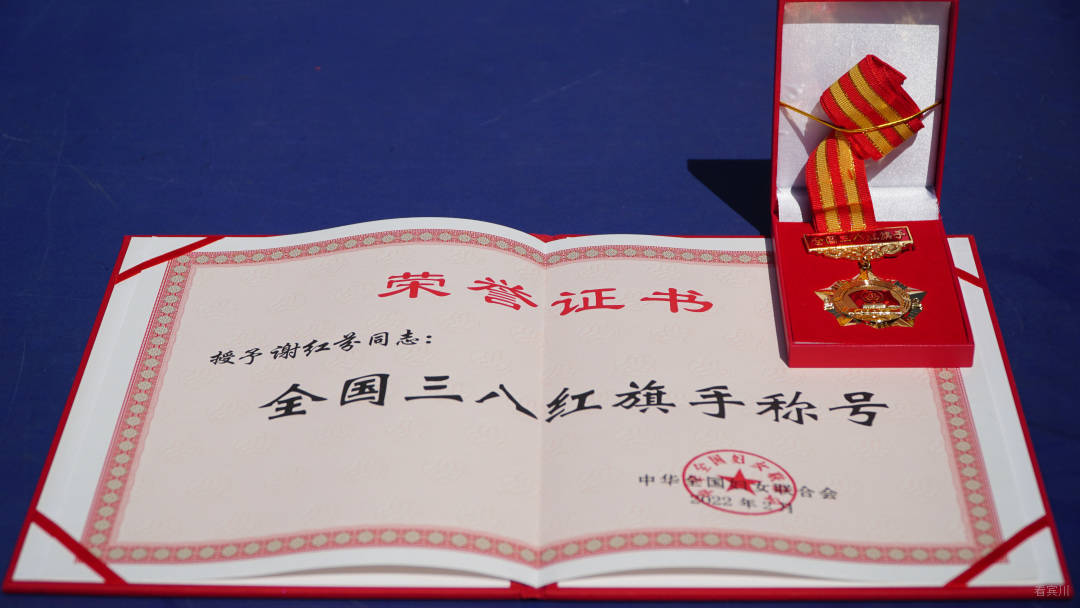 荣誉证书
授予谢红芬同志：
全国三八红旗手称号
中华全国妇女联合会
2022年2月
全国三八红旗手
看宾川